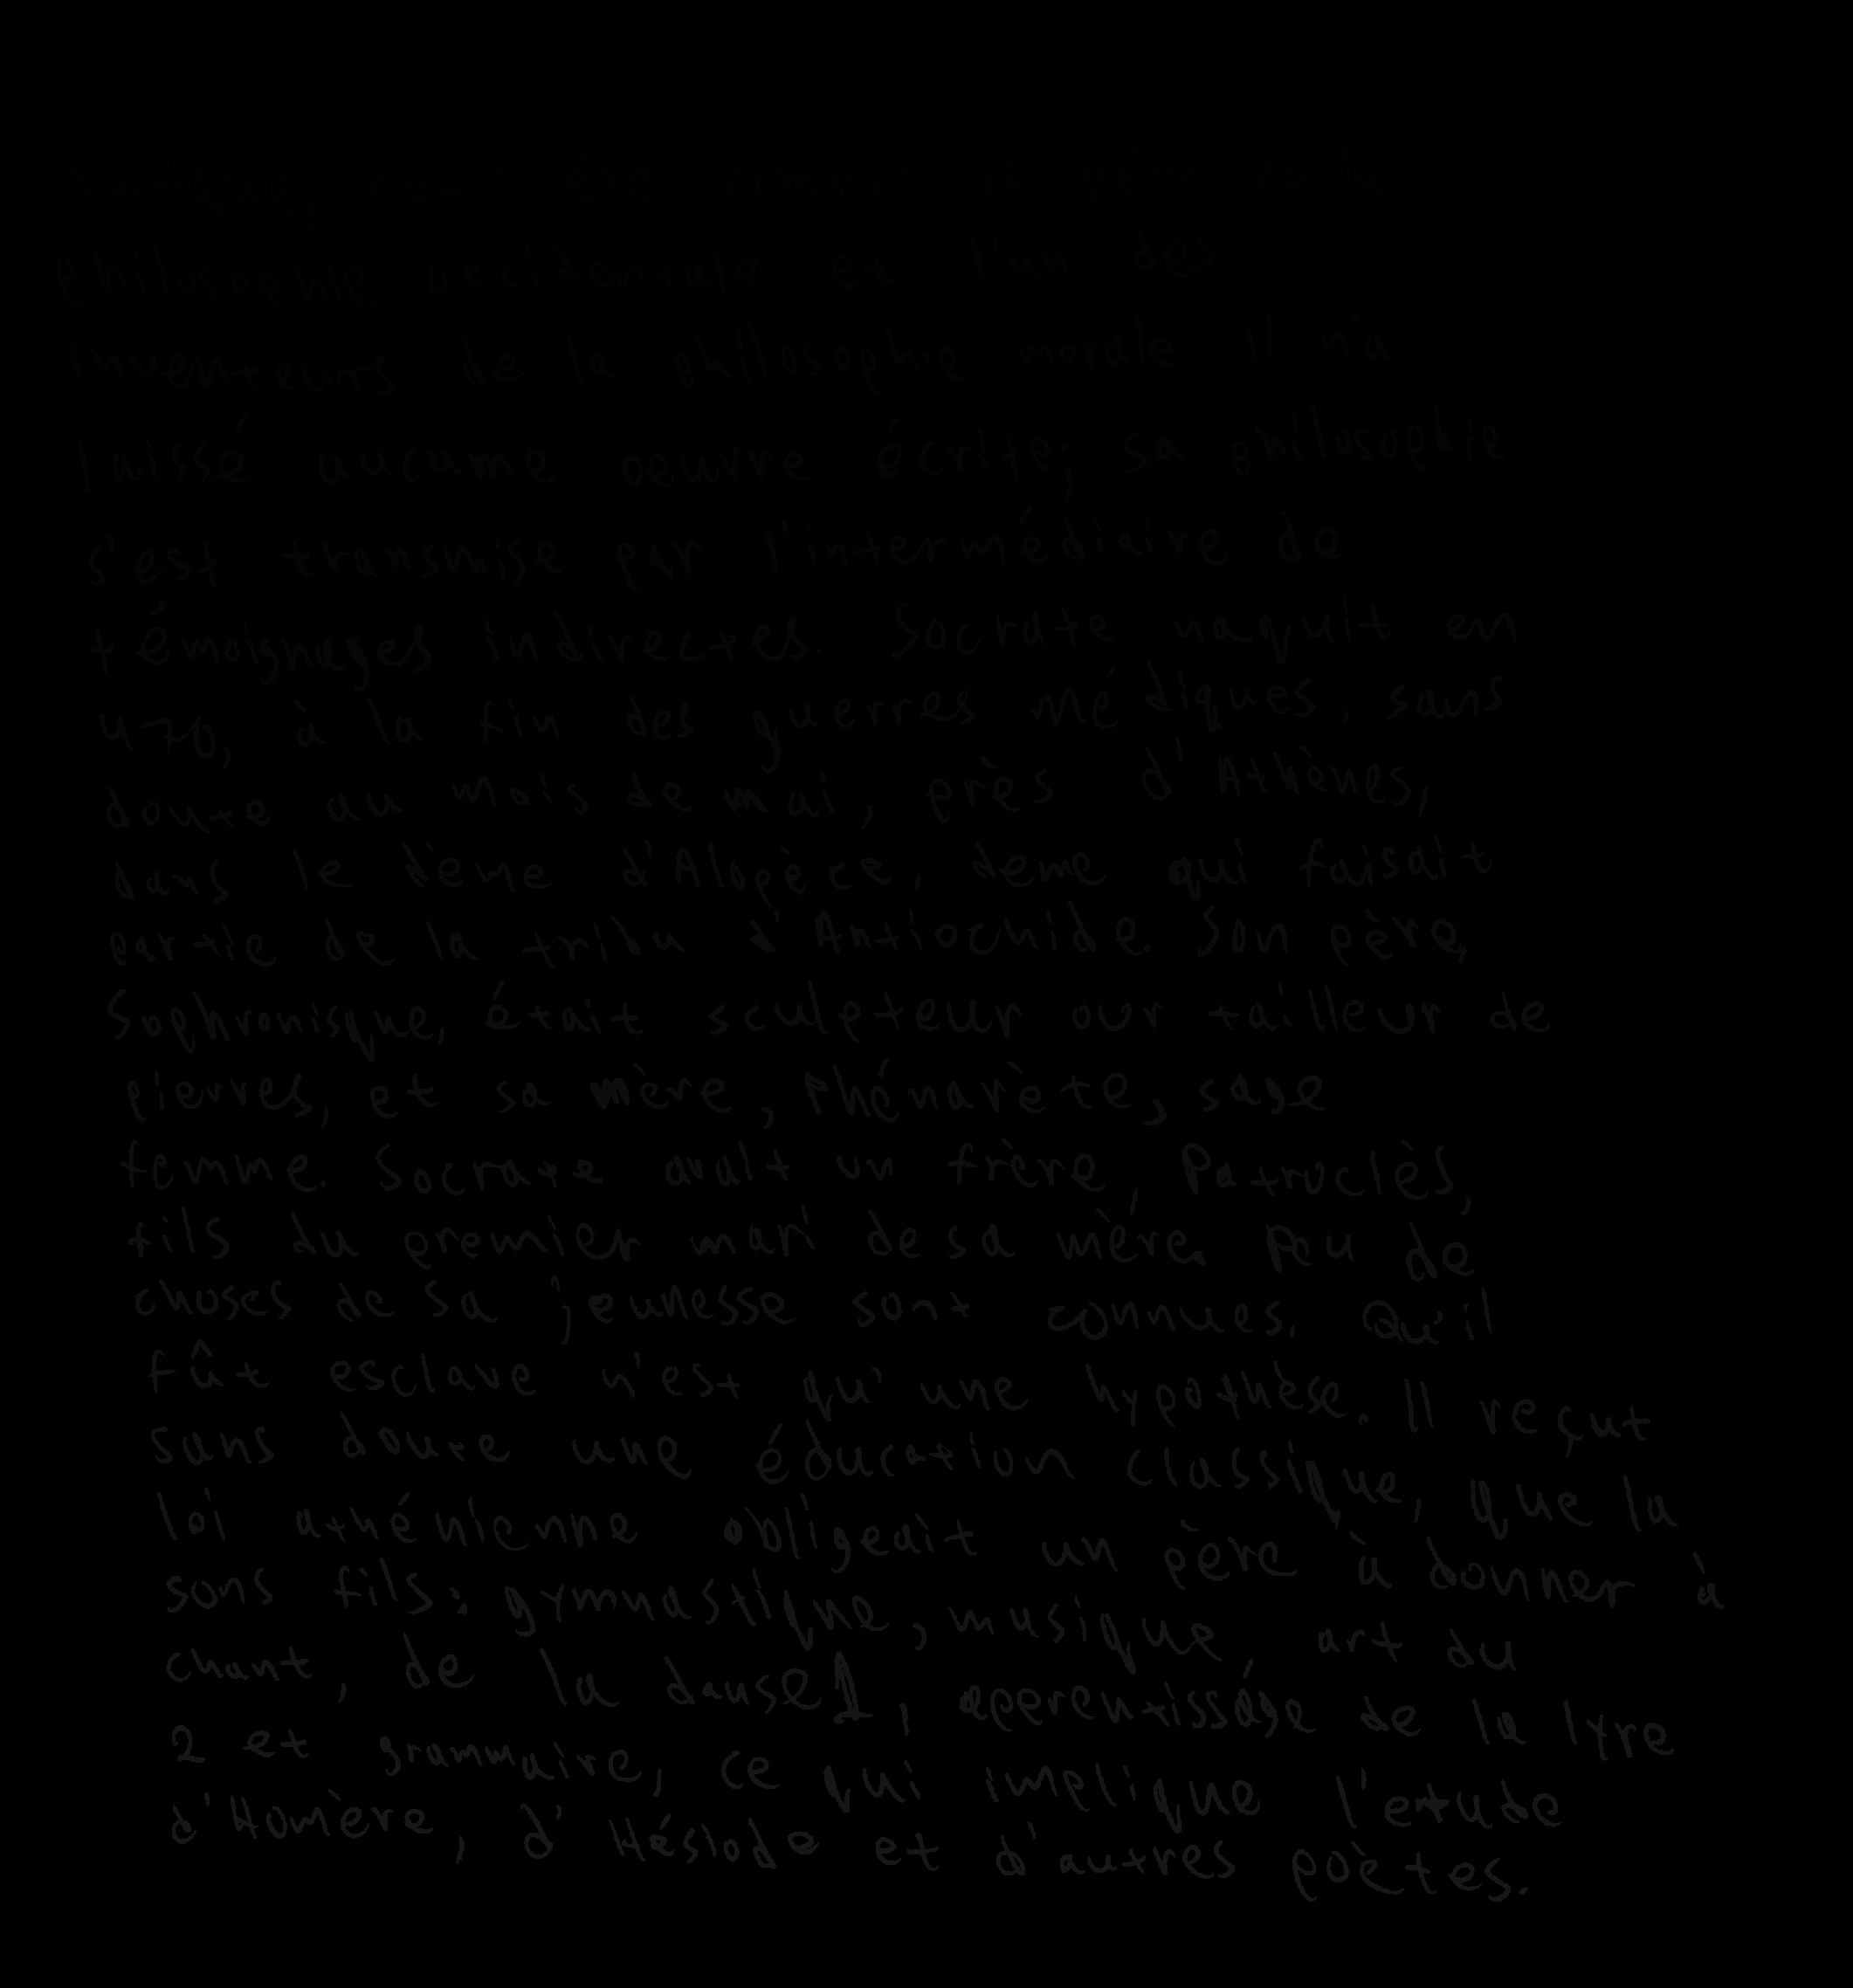 Socrate est un philosophe de la Grèce
antique, considéré comme le père de la
philosophie occidentale et l'un des
inventeurs de la philosophie morale. Il n'a
laissé aucume oeuvre écrite; sa philosophie
s'est transmise par l'intermédiaire de
témoignages indirectes. Socrate naquit en
470, à la fin des guerres médiques, sans
doute au mois de mai, près d'Athènes,
dans le dème d'Alopèce, deme qui faisait
partie de la tribu d'Antiochide. Son père,
Sophronisque, était sculpteur our tailleur de
pierres, et sa mère, Phénarète, sage
femme. Socrate avait un frère, Patroclès,
fils du premier mari de sa mère. Peu de
choses de sa jeunesse sont connues. Qu'il
fût esclave n'est qu'une hypothèse. Il reçut
sans doute une éducation classique, que la
loi athénienne obligeait un père à donner à
sons fils: gymnastique, musique, art du
chant, de la danse1, apprentissage de la lyre
2 et grammaire, ce qui implique l'etude
d'Homère, d'Hésiode et d'autres poètes.